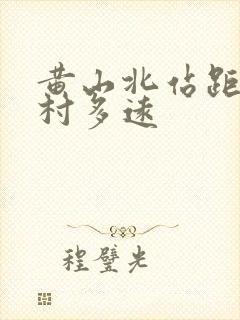 黄山北站距
村多遠
程璧光